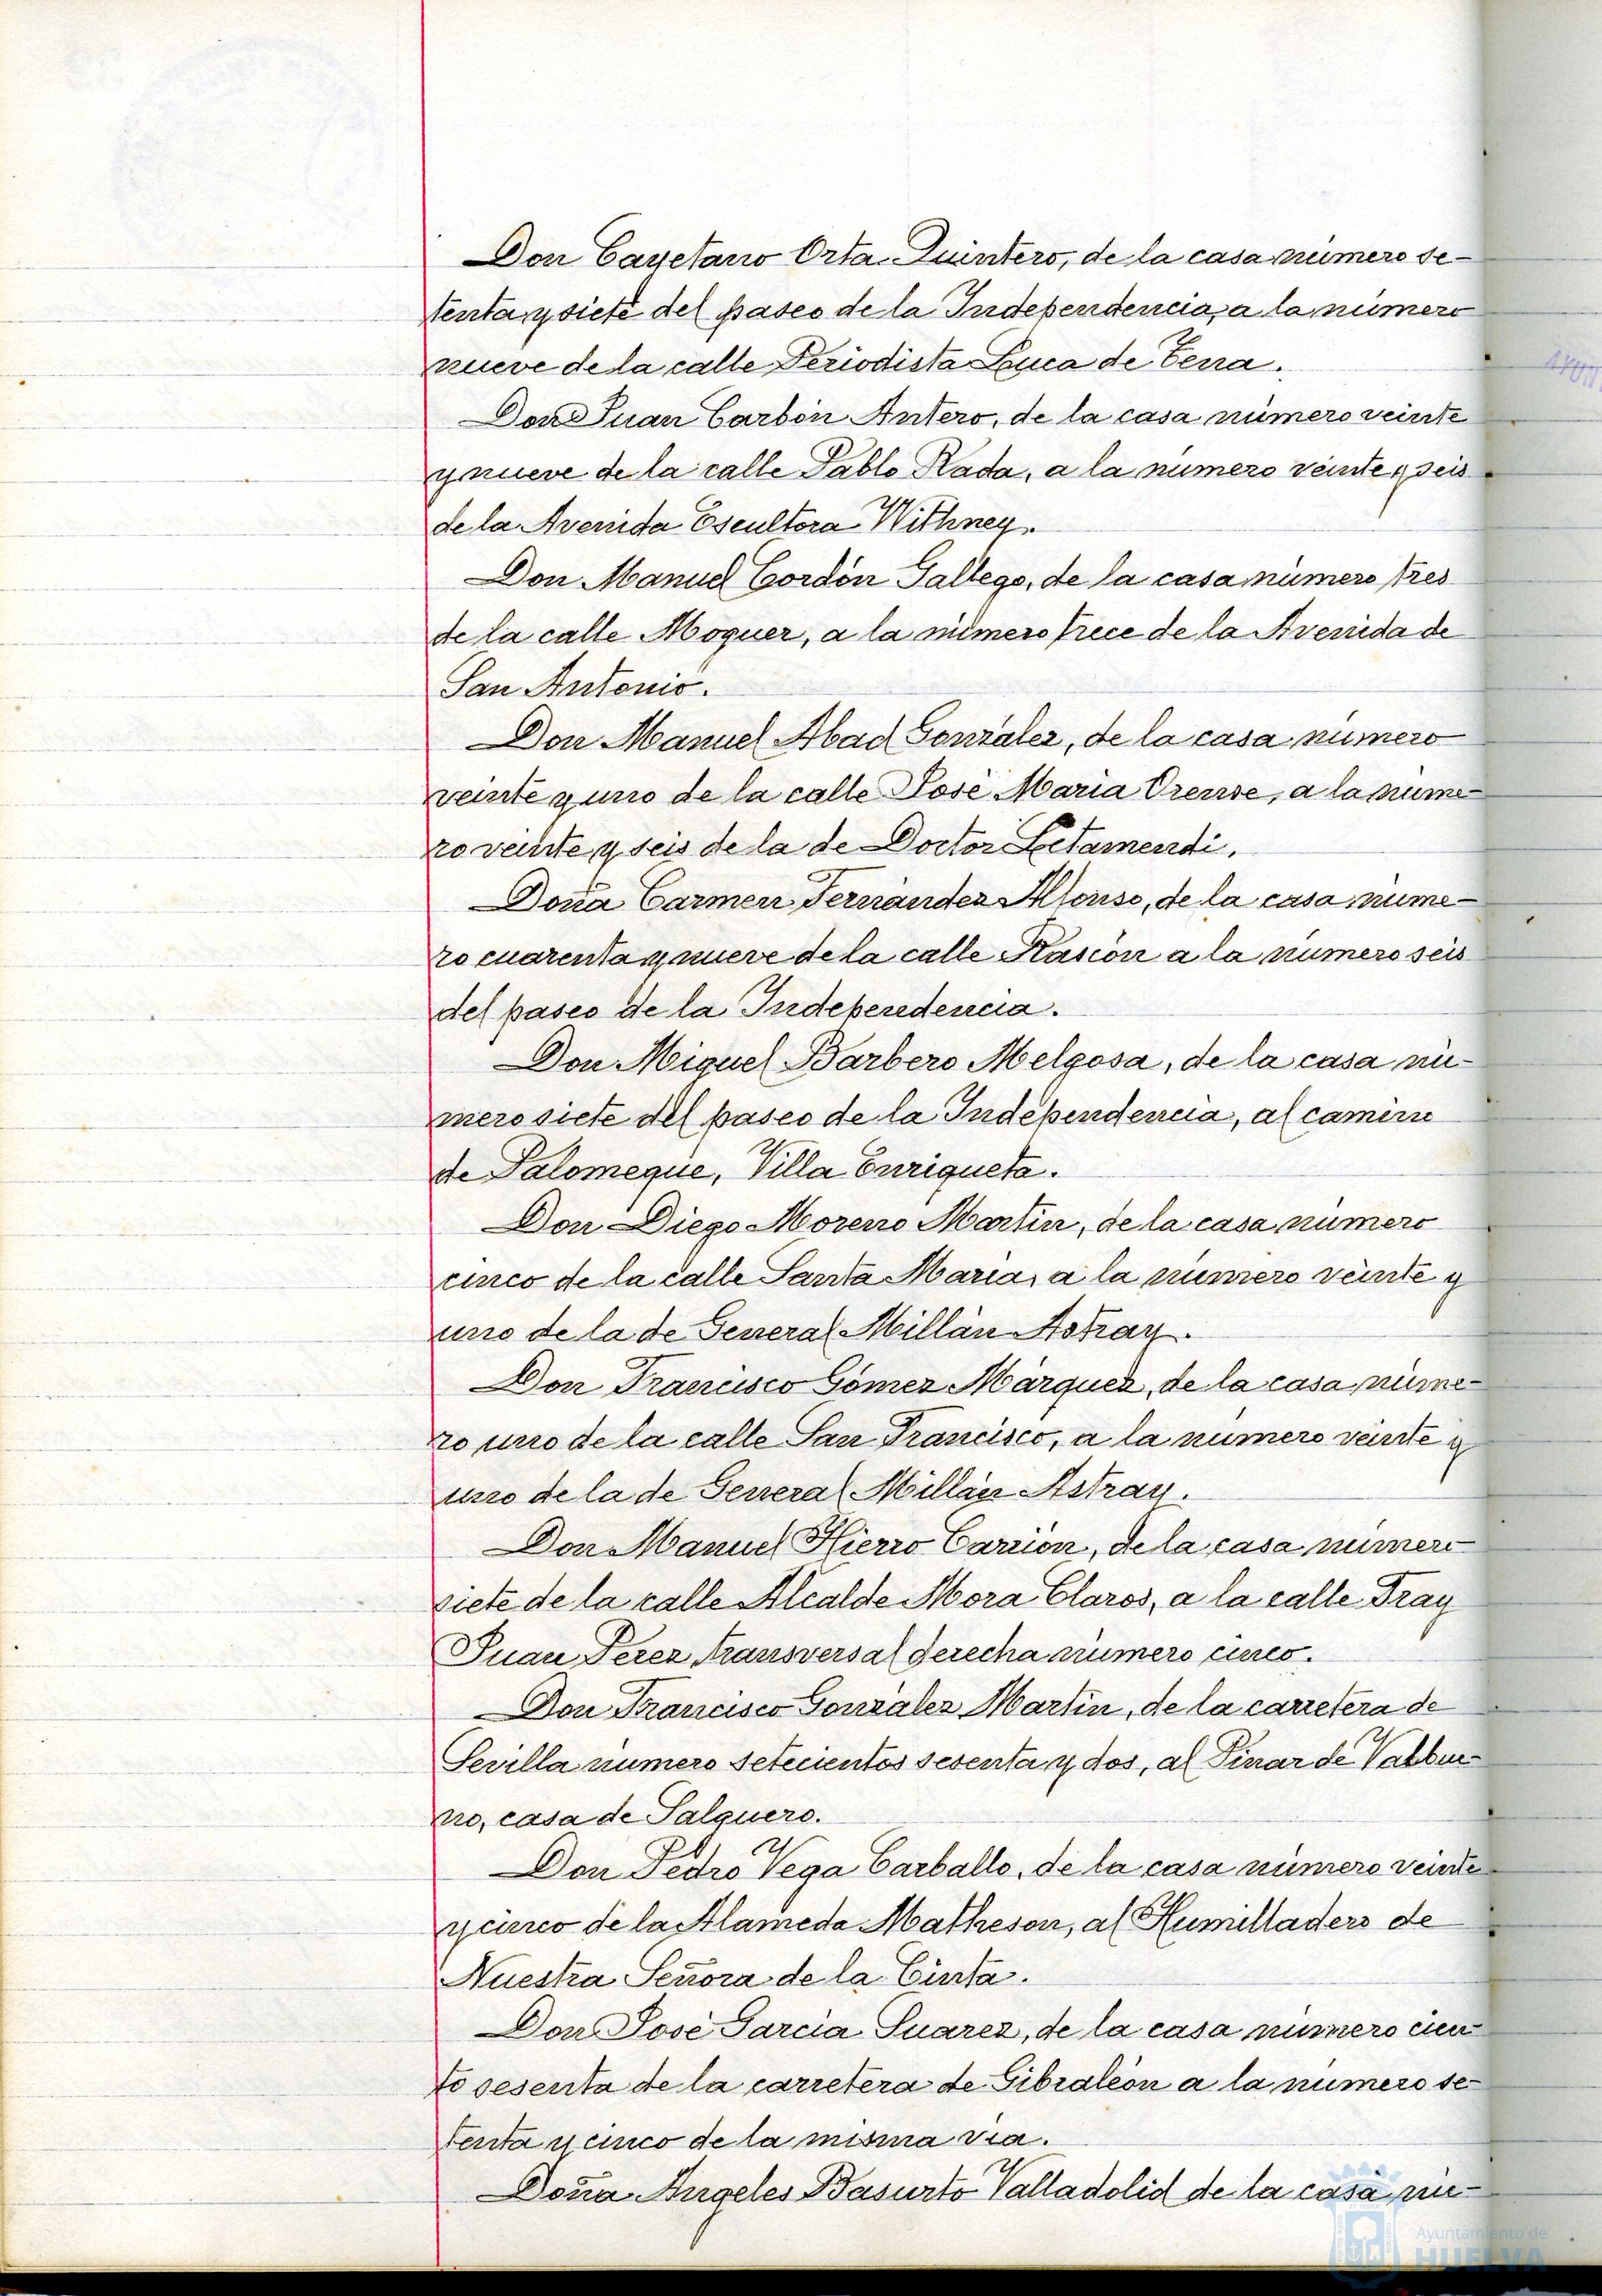 Don Cayetano Orta Quintero, de la casa número se-
tenta y siete del paseo de la Independencia, a la número
nueve de la calle Periodista Luca de Tena.
Don Juan Carbón Antero, de la casa número veinte
y nueve de la calle Pablo Rada, a la número veinte y seis
de la Avenida Escultora Withney.
Don Manuel Cordón Gallego, de la casa número tres
de la calle Moguer, a la número trece de la Avenida de
San Antonio.
Don Manuel Abad González, de la casa número
veinte y uno de la calle José María Orense, a la núme-
ro veinte y seis de la de Doctor Letamendi.
Doña Carmen Fernández Alfonso, de la casa núme-
ro cuarenta y nueve de la calle Rascón a la número seis
del paseo de la Independencia.
Don Miguel Barbero Melgosa, de la casa nú-
mero siete del paseo de la Independencia, al camino
de Palomeque, Villa Enriqueta.
Don Diego Moreno Martin, de la casa número
cinco de la calle Santa María, a la número veinte y
uno de la de General Millán Astray.
Don Francisco Gómez Márquez, de la casa núme-
ro uno de la calle San Francisco, a la número veinte y
uno de la de General Millán Astray.
Don Manuel Hierro Carrión, de la casa número
siete de la calle Alcalde Mora Claros, a la calle Fray
Juan Pérez transversal derecha número cinco.
Don Francisco González Martín, de la carretera de
Sevilla número setecientos sesenta y dos, al Pinar de Valbue-
no, casa de Salguero.
Don Pedro Vega Carballo, de la casa número veinte
y cinco de la Alameda Matheson, al Humilladero de
Nuestra Señora de la Cinta.
Don José García Suarez, de la casa número cien-
to sesenta de la carretera de Gibraleón a la número se-
tenta y cinco de la misma vía.
Doña Angeles Basurto Valladolid de la casa nú-
Ayuntamiento de
HUELVA